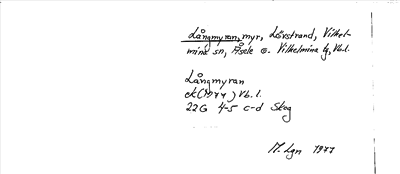 Långmyran, myr, Lövstrand, Vilhel-
mina sn, Åsele o. Vilhelmina tg, Vb.l.
Långmyran
ek (1977) Vb.l.
22G 4-5 c-d Skog
M. Lgn 1977